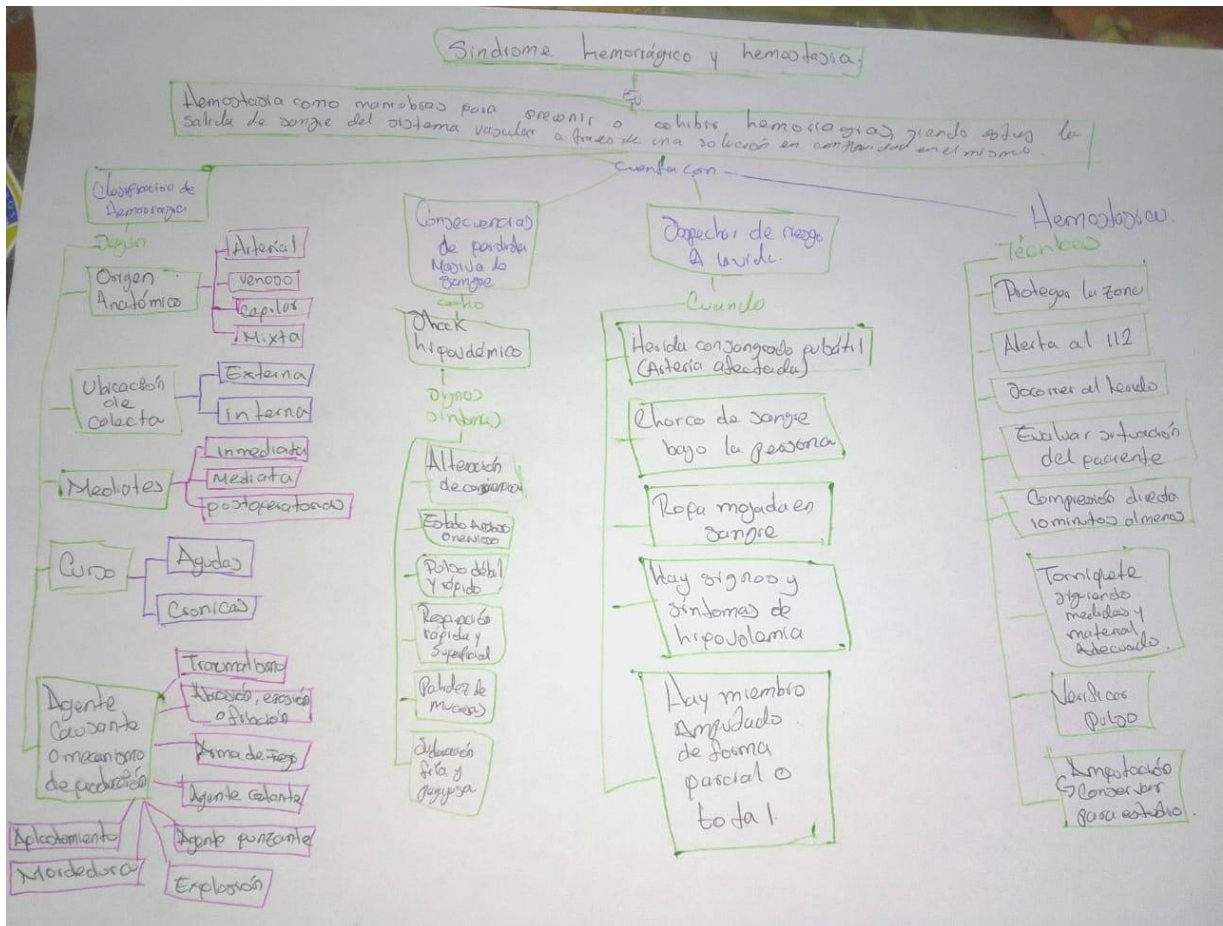 Síndrome hemorrágico y hemostasia.
Es
Hemostasia como maniobras para prevenir o cohibir hemorragias, siendo estas la
salida de sangre del sistema vascular a traves de una solución en continuidad en el mismo.
Cuenta con
Clasificacion de
Hemorragia
Según
Origen
Anatómico
Arterial
Venoso
Capilar
Mixta
Ubicación
de
colecta
Externa
interna
Mediates
inmediata
Mediata
postoperatorias
Curso
Agudas
Cronicas
Agente
Causante
o mecanismo
de producción
Traumatismo
Abrasión, erosión
o fricción
Arma de fuego
Agente cortante
Agente punzante
Explosión
Aplastamiento
Mordedura
Consecuencias
de perdida
Masiva de
Sangre
como
Shock
hipovolémico
Signos
síntomas
Alteración
de conciencia
Estado
Pulso débil
y rápido
Respiración
rápida y
Superficial
Palidez de
mucosas
Sudoración
fría y
pegajosa
Sospechar de riesgo
A la vida.
Cuando
Herida con sangrado pulsátil
(Arteria afectada)
Charco de sangre
bajo la persona
Ropa mojada en
sangre
Hay signos y
síntomas de
hipovolemia
Hay miembro
Amputado
de forma
parcial o
total.
Hemostasia
Técnicas
Proteger la zona
Alerta al 112
Socorrer al herido
Evaluar situación
del paciente
Compresión directa
10 minutos al menos
Torniquete
siguiendo
medidas y
material
Adecuado.
Verificar
pulso
Amputación
Conservar
para estudio.